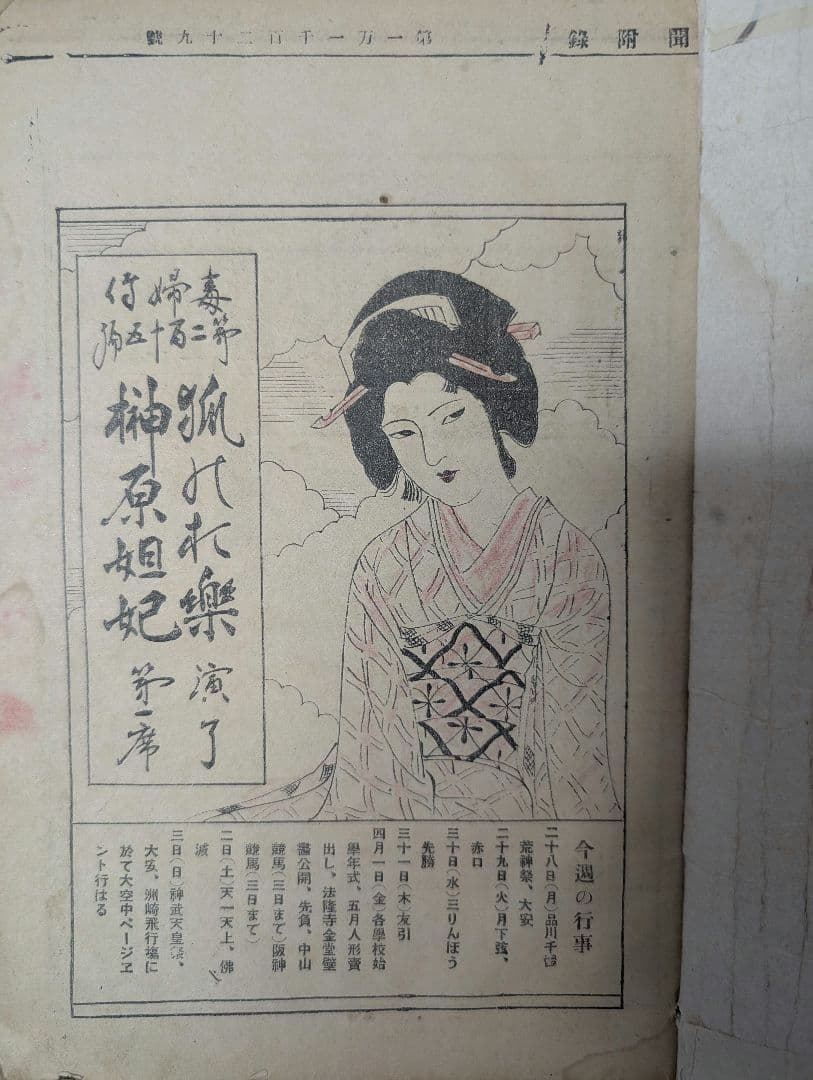 聞附錄
第一万一千百二十九號
毒婦傳
第二百十五號
狐のお樂 演了
榊原妲妃 第一席
今週の行事
二十八日(月)品川千躰
荒神祭、大安
二十九日(火)月下弦、
赤口
三十日(水)三りんぼう
先勝
三十一日(木)友引
四月一日(金)各學校始
學年式、五月人形賣
出し、法隆寺金堂壁
畵公開、先負、中山
競馬(三日まで)阪神
競馬(三日まで)
二日(土)天一天上、佛
滅
三日(日)神武天皇祭、
大安、洲崎飛行塲に
於て大空中ページエ
ント行はる